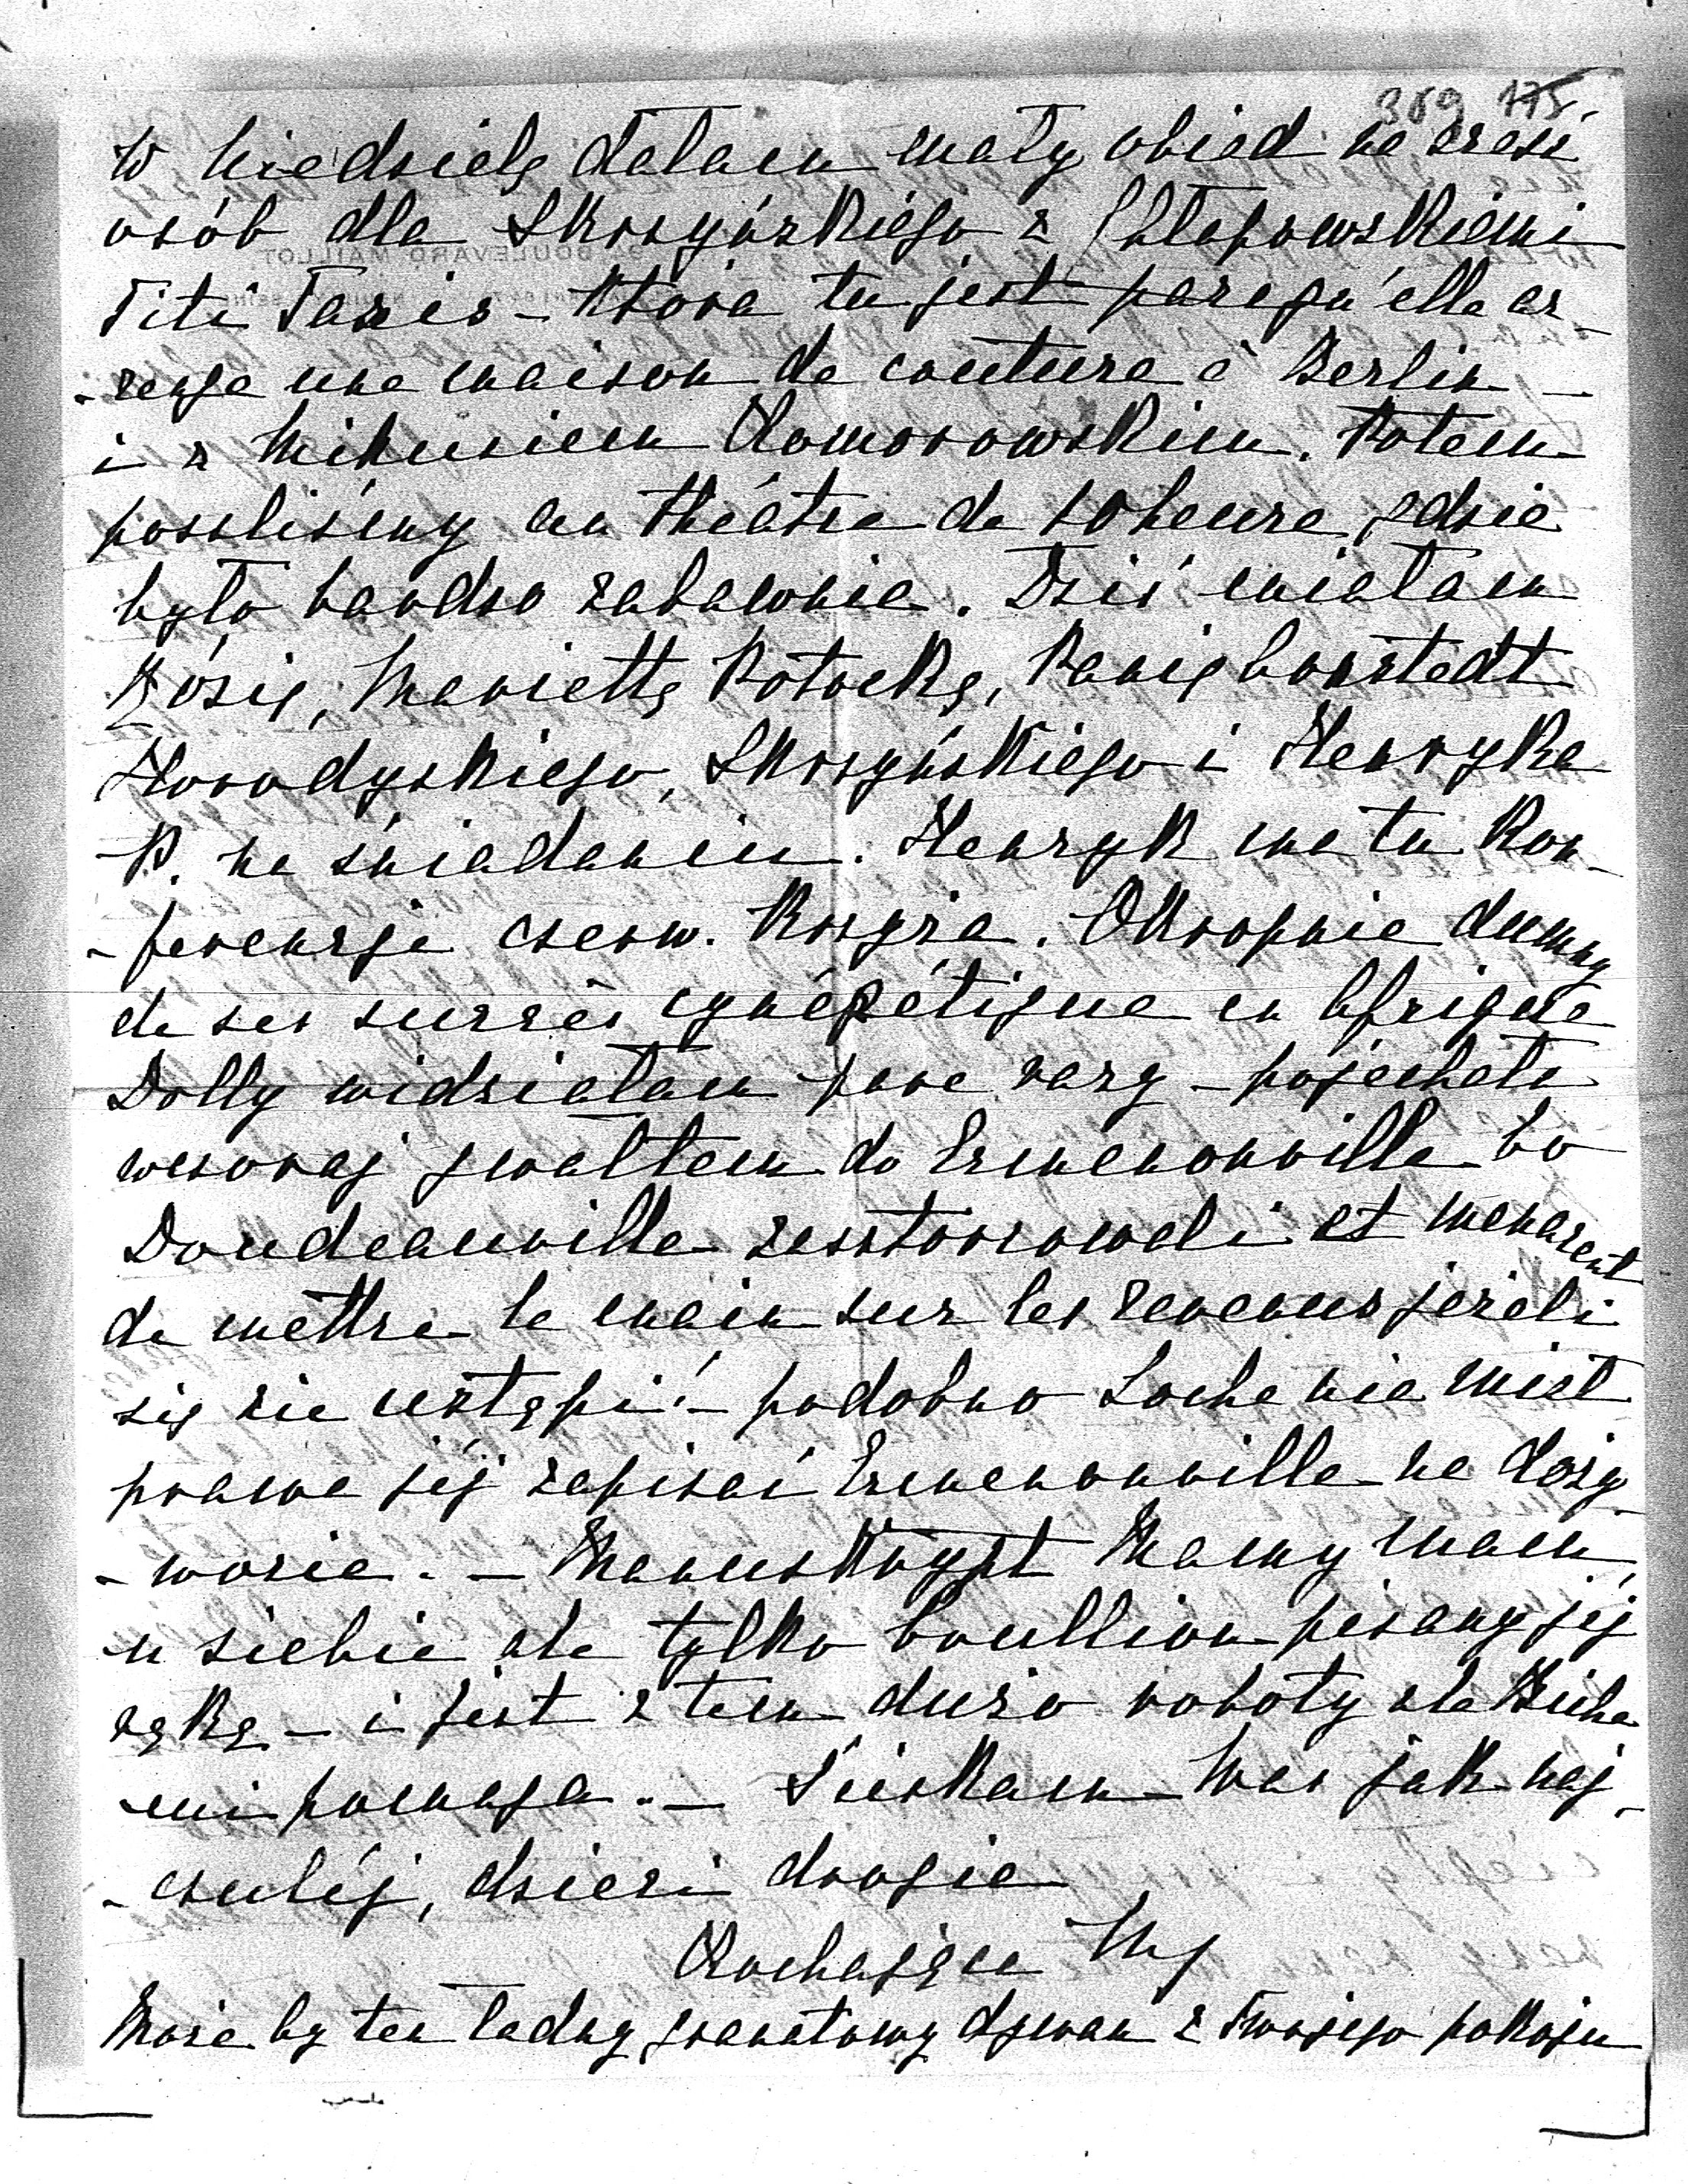 389 175
W Niedzielę dałam mały obiad na sześć
osób dla Skrzyńskiego z Chłapowskiemi
Titi Taxis – która tu jest parcqu'elle ar-
-range une maison de couture à Berlin –
i z Mikusiem Komorowskim. Potem
poszliśmy au théâtre de 10 heure, gdzie
było bardzo zabawnie. Dziś miałam
Zosię, Mariettę Potocką, Panią
Horodyskiego, Skrzyńskiego i Henryka
P. na śniadaniu. Henryk ma tu kon-
-ferencje czerw. Krzyża. Okropnie dumny
de ses succès cynégétique en Afrique
Dolly widziałam parę razy – pojechała
wczoraj gwałtem do Ermenonville bo
Doudeauville zasztorcowali et menacent
de mettre la main sur les revenus jeżeli
się nie ustąpi! – podobno Loche nie miał
prawa jéj zapisać Ermenonville na doży-
-wocie. – Manuskrypt Mamy mam
u siebie ale tylko boullion pisany jéj
ręką – i jest z tem dużo roboty ale
mi pomaga. – Ściskam Was jak naj-
-czuléj, dzieci drogie
Kochająca
Może by ten ładny granatowy dywan z Twojego pokoju